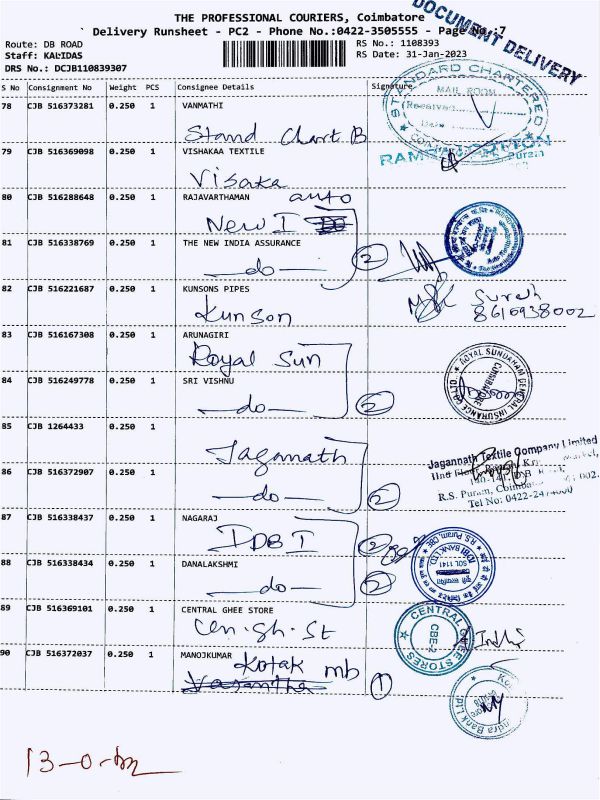 THE PROFESSIONAL COURIERS, Coimbatore
Delivery Runsheet - PC2 - Phone No.:0422-3505555 - Page No.:7
DOCUMENT DELIVERY
Route: DB ROAD
RS No.: 1108393
Staff: KALIDAS
RS Date: 31-Jan-2023
DRS No.: DCJB110839307
S No Consignment No Weight PCS Consignee Details Signature
78 CJB 516373281 0.250 1 VANMATHI
Stand Chart B
STANDARD CHARTERED
MAIL ROOM
Received
79 CJB 516369098 0.250 1 VISHAKAA TEXTILE
Visaka
80 CJB 516288648 0.250 1 RAJAVARTHAMAN auto
New I
81 CJB 516338769 0.250 1 THE NEW INDIA ASSURANCE
do
2
82 CJB 516221687 0.250 1 KUNSONS PIPES
Kunson
Suresh
8610938002
83 CJB 516167308 0.250 1 ARUNAGIRI
Royal Sun
84 CJB 516249778 0.250 1 SRI VISHNU
do
2
ROYAL SUNDARAM GENERAL INSURANCE CO. LTD
COIMBATORE
85 CJB 1264433 0.250 1
Jagannath
86 CJB 516372907 0.250 1
do
2
Jagannath Textile Company Limited
R.S. Puram,
Tel No: 0422-
87 CJB 516338437 0.250 1 NAGARAJ
IDBI
2
88 CJB 516338434 0.250 1 DANALAKSHMI
do
2
IDBI BANK LTD.
SOL 1141
R.S. Puram, CBE
89 CJB 516369101 0.250 1 CENTRAL GHEE STORE
Cen. Gh. St
CENTRAL GHEE STORES
CBE-2
90 CJB 516372037 0.250 1 MANOJKUMAR
Kotak mb
Vasantha
1
13-0-